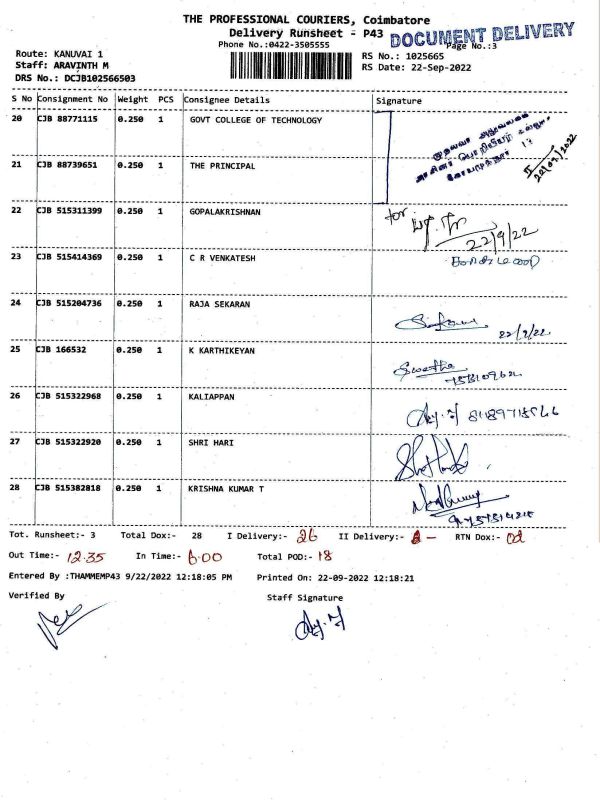 THE PROFESSIONAL COURIERS, Coimbatore
Delivery Runsheet - P43
DOCUMENT DELIVERY
Phone No.:0422-3505555
Page No.:3
Route: KANUVAI 1
RS No.: 1025665
Staff: ARAVINTH M
RS Date: 22-Sep-2022
DRS No.: DCJB102566503
S No Consignment No Weight PCS Consignee Details Signature
20 CJB 88771115 0.250 1 GOVT COLLEGE OF TECHNOLOGY
21 CJB 88739651 0.250 1 THE PRINCIPAL
22/09/2022
22 CJB 515311399 0.250 1 GOPALAKRISHNAN for
22/9/22
23 CJB 515414369 0.250 1 C R VENKATESH
24 CJB 515204736 0.250 1 RAJA SEKARAN
22/9/22
25 CJB 166532 0.250 1 K KARTHIKEYAN
Swetha
26 CJB 515322968 0.250 1 KALIAPPAN
27 CJB 515322920 0.250 1 SHRI HARI
28 CJB 515382818 0.250 1 KRISHNA KUMAR T
Tot. Runsheet:- 3 Total Dox:- 28 I Delivery:- 26 II Delivery:- - RTN Dox:- 02
Out Time:- 12.35 In Time:- 6.00 Total POD:- 18
Entered By :THAMMEMP43 9/22/2022 12:18:05 PM Printed On: 22-09-2022 12:18:21
Verified By
Staff Signature